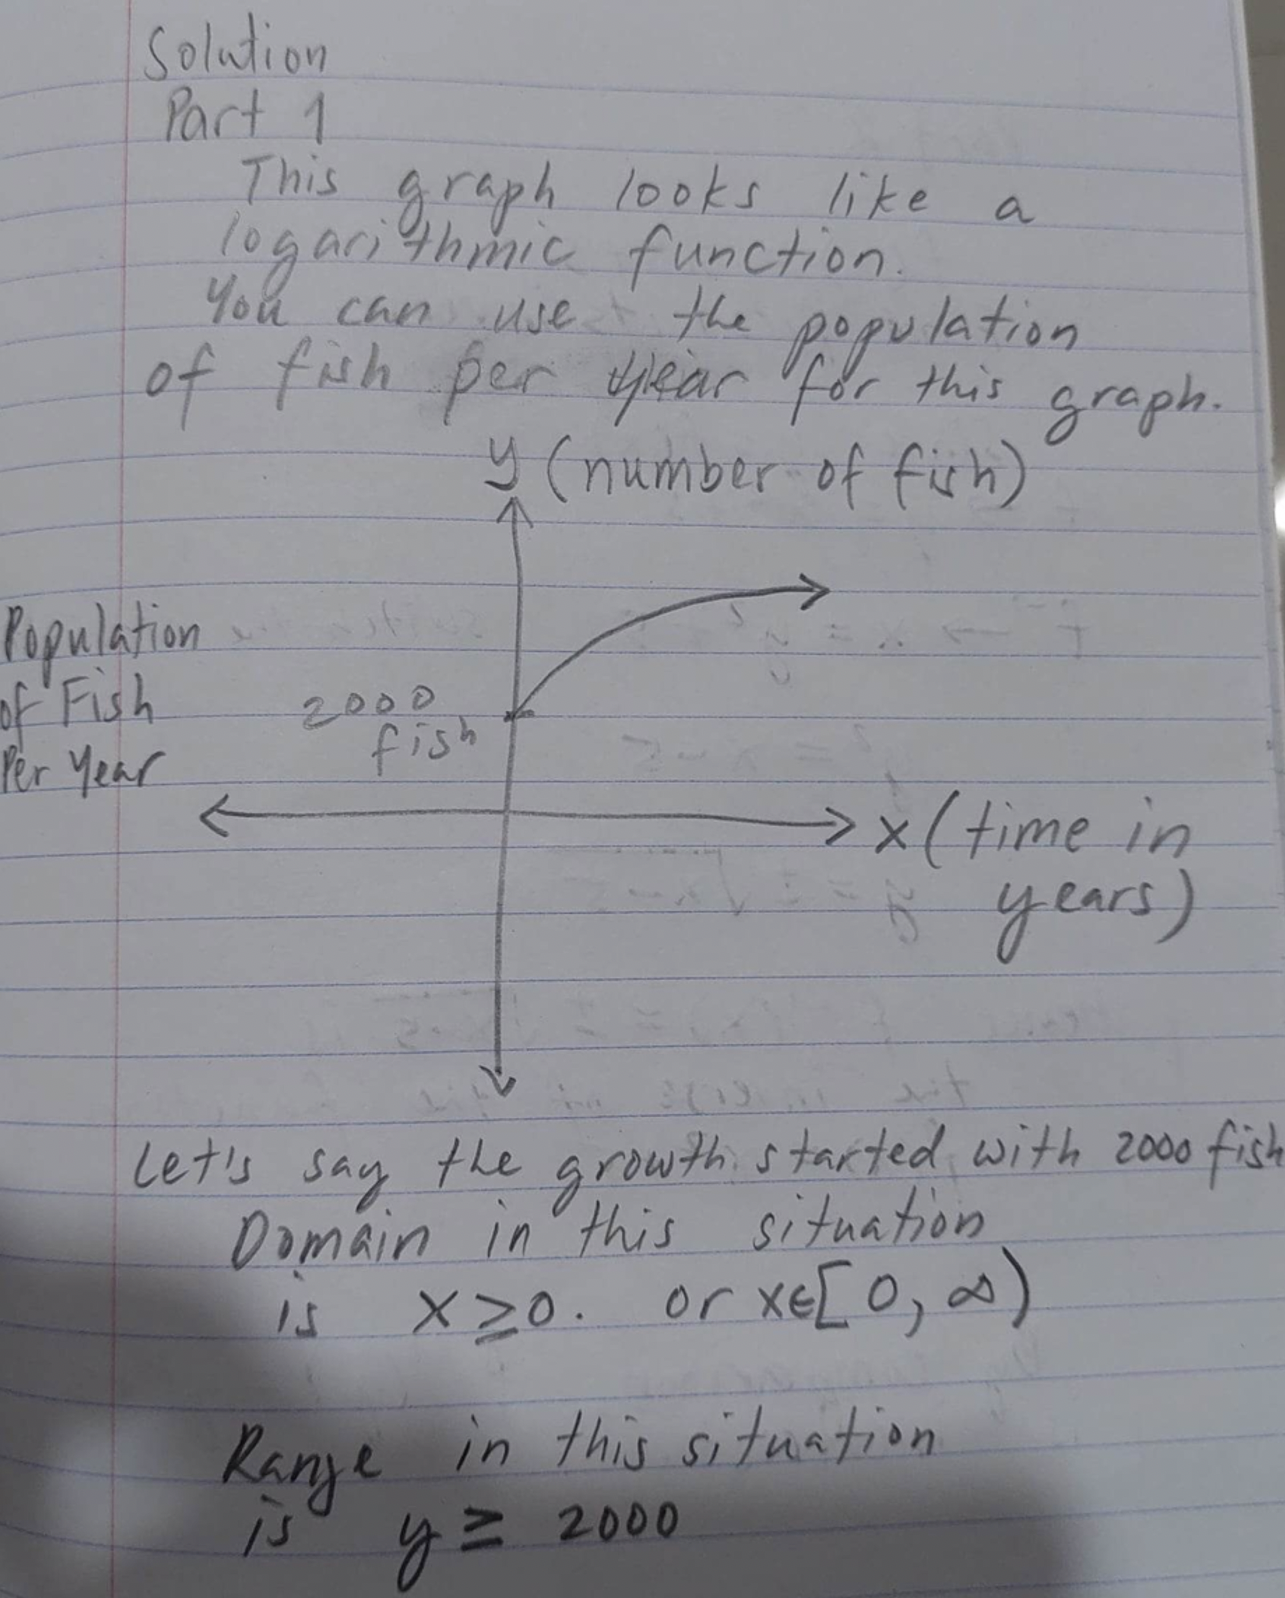 Solution
Part 1
This graph looks like a
logarithmic function.
You can use the population
of fish per year for this graph.
y (number of fish)
Population
of Fish
Per Year
2000
fish
x (time in
years)
Let's say the growth started with 2000 fish
Domain in this situation
is x ≥ 0. or x∈[0, ∞)
Range in this situation
is y ≥ 2000